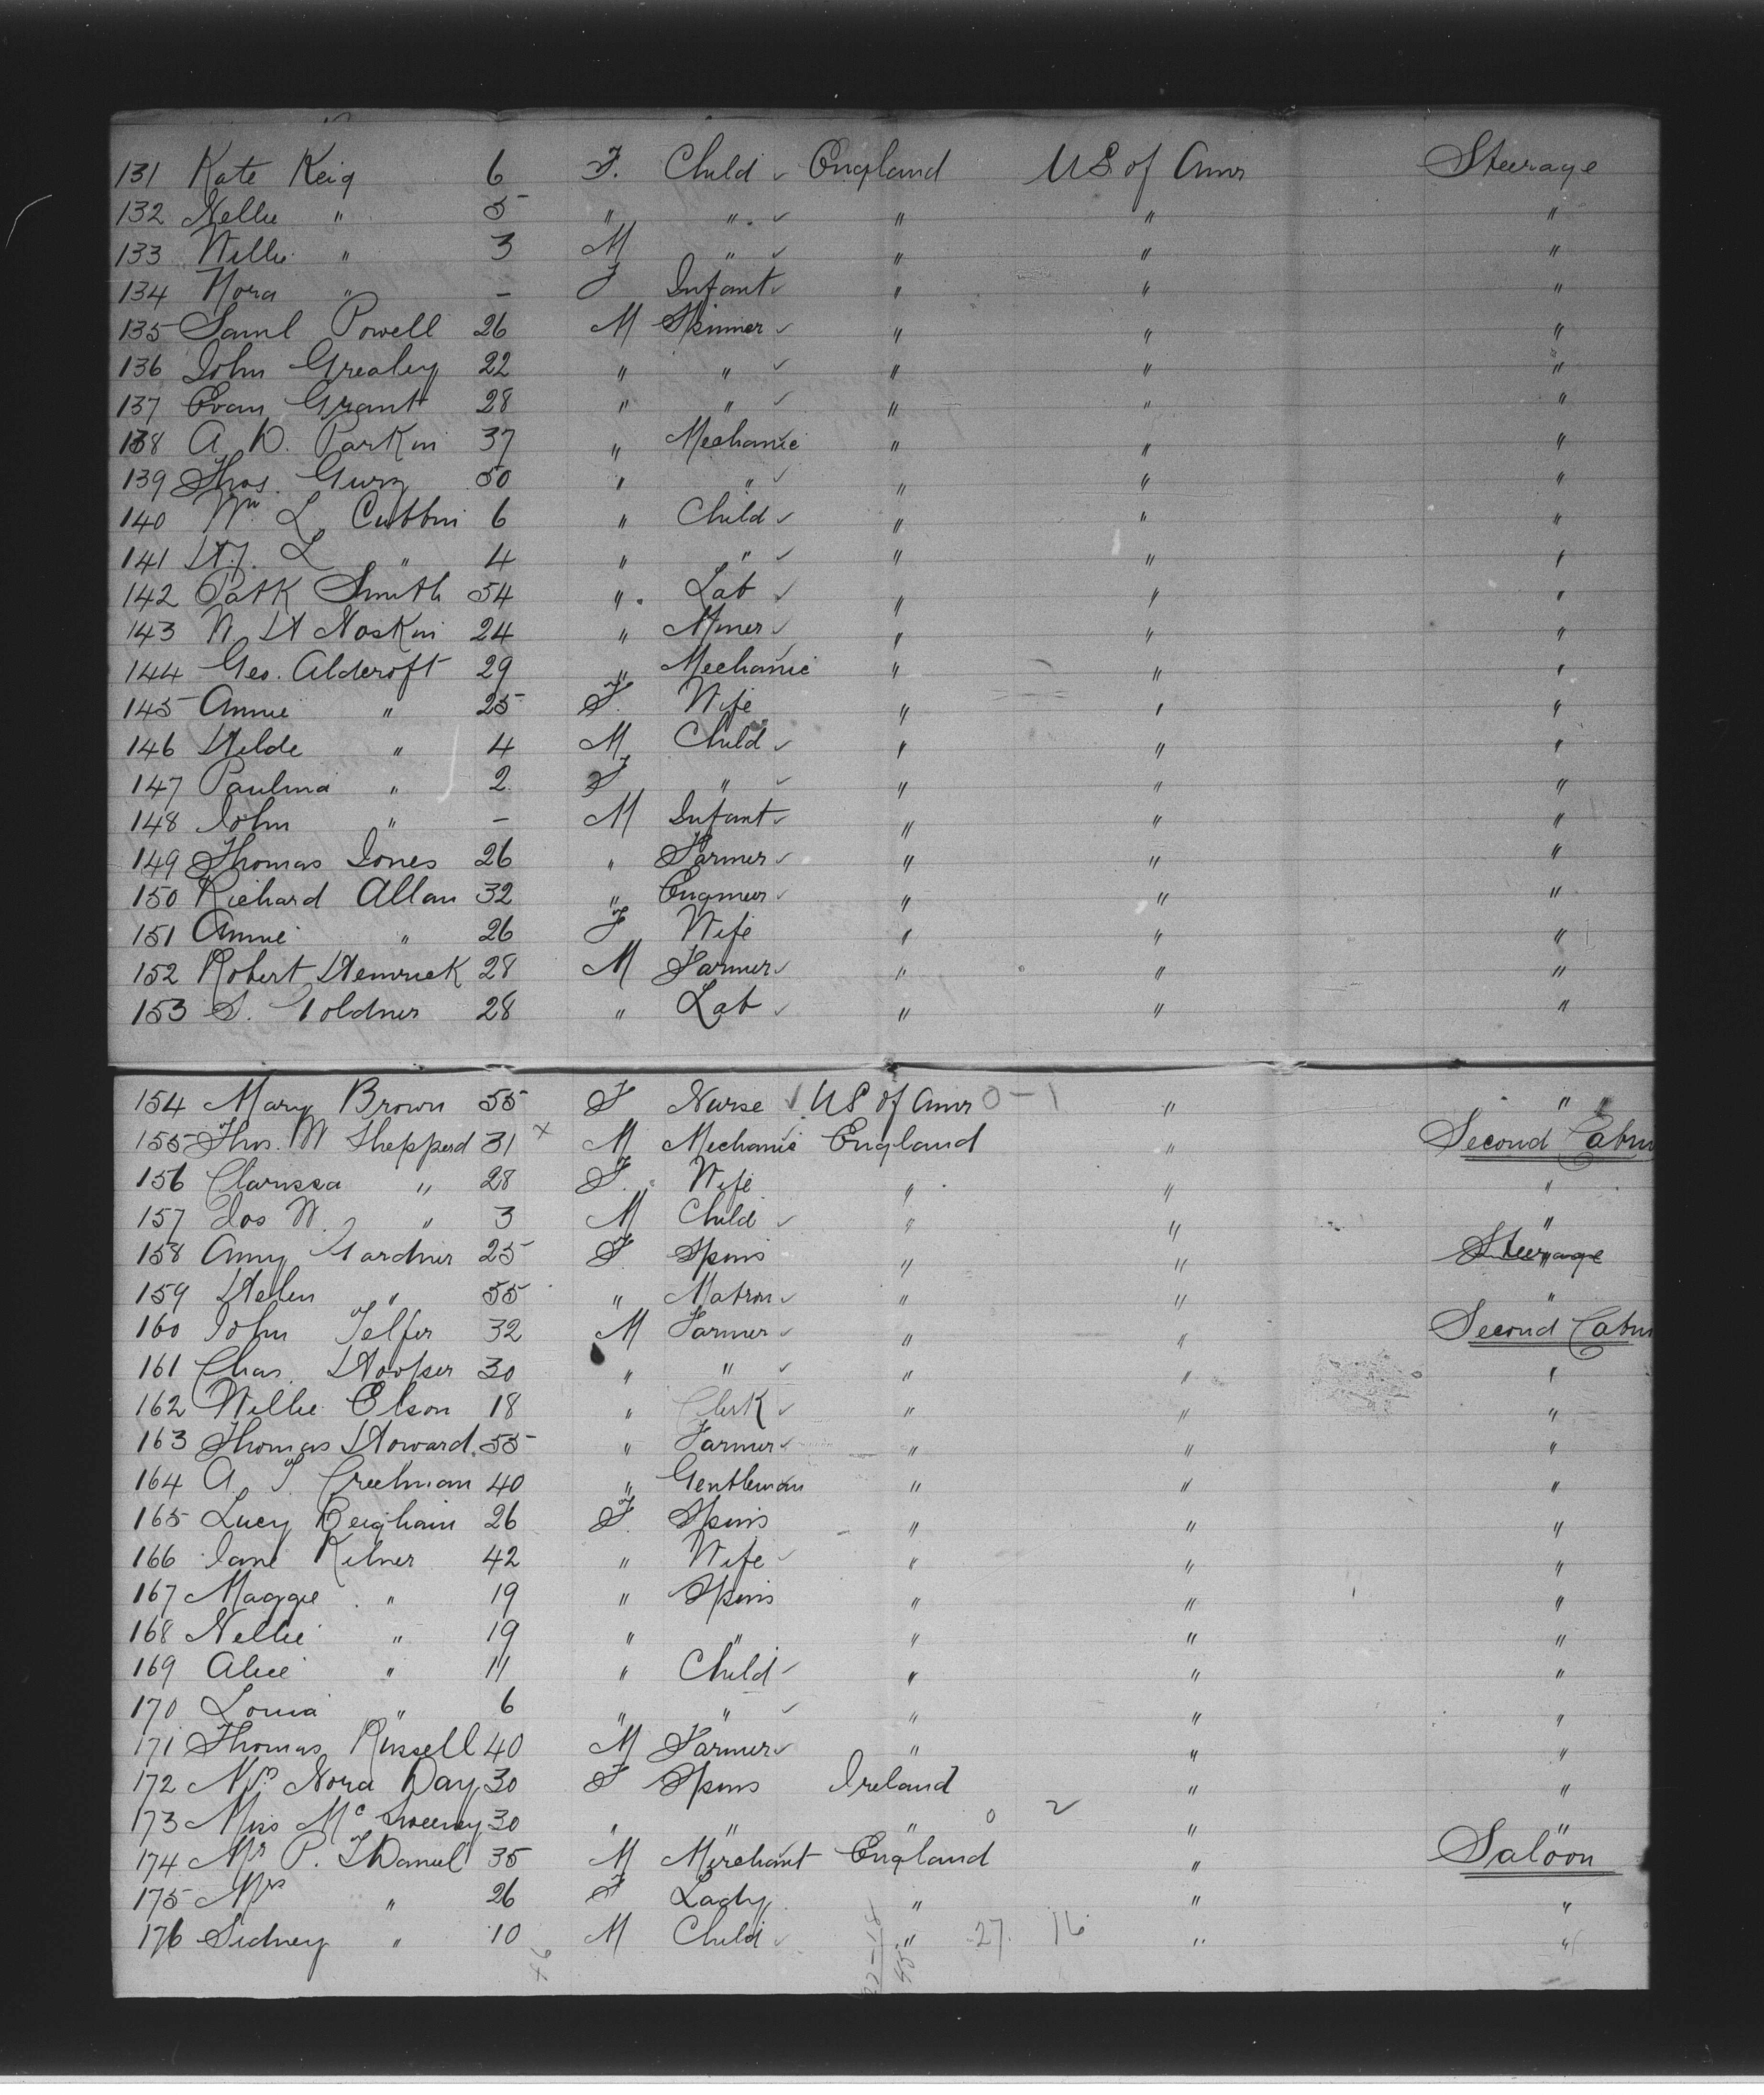 131 Kate Keig 6 F. Child ✓ England US of Amr Steerage
132 Nellie " 5 " " ✓ " " "
133 Willie " 3 M " ✓ " " "
134 Nora " – F Infant ✓ " " "
135 Saml Powell 26 M Spinner ✓ " " "
136 John Grealey 22 " " ✓ " " "
137 Evan Grant 28 " " ✓ " " "
138 A. D. Parkin 37 " Mechanic " " "
139 Thos. Gurry 50 " " ✓ " " "
140 Wm L Cubbin 6 " Child ✓ " " "
141 H.J. L " 4 " " ✓ " " "
142 Patk Smith 54 " Lab ✓ " " "
143 W H Noskin 24 " Miner ✓ " " "
144 Geo. Aldcroft 29 " Mechanic " " "
145 Annie " 25 F. Wife " " "
146 Hilde " 4 M Child ✓ " " "
147 Paulina " 2 F " ✓ " " "
148 John " – M Infant ✓ " " "
149 Thomas Jones 26 " Farmer ✓ " " "
150 Richard Allan 32 " Engineer ✓ " " "
151 Annie " 26 F Wife " " "
152 Robert Hemrick 28 M Farmer ✓ " " "
153 S. Goldner 28 " Lab ✓ " " "
154 Mary Brown 55 F Nurse ✓ US of Amr 0 – 1 " " "
155 Thos. W Shepperd 31 x M Mechanic England " Second Cabin
156 Clarissa " 28 F. Wife " " "
157 Jos W. " 3 M Child ✓ " " "
158 Amy Gardner 25 F Spins " " Steerage "
159 Helen " 55 " Matron ✓ " " "
160 John Telfer 32 M Farmer ✓ " " Second Cabin
161 Chas. Hooper 30 " " ✓ " " "
162 Willie Elson 18 " Clerk ✓ " " "
163 Thomas Howard 55 " Farmer ✓ " " "
164 A. T. Creelman 40 " Gentleman " " "
165 Lucy Beigham 26 F. Spins " " "
166 Jane Kilner 42 " Wife ✓ " " "
167 Maggie " 19 " Spins " " "
168 Nellie " 19 " " " " "
169 Alice " 11 " Child ✓ " " "
170 Louia " 6 " " ✓ " " "
171 Thomas Russell 40 M Farmer ✓ " " "
172 Nora Day 30 F Spins Ireland " "
173 Miss McSweeney 30 " " " 0 2 " "
174 Mr P. Daniel 35 M Merchant England " Saloon
175 Mrs " 26 F Lady " " "
176 Sidney " 10 M Child ✓ " 27 16 " "
x 6 45